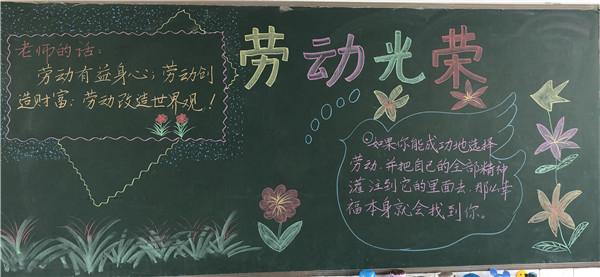 老师的话:
劳动有益身心;劳动创
造财富;劳动改造世界观!
劳动光荣
如果你能成功地选择
劳动,并把自己的全部精神
灌注到它的里面去,那么幸
福本身就会找到你。